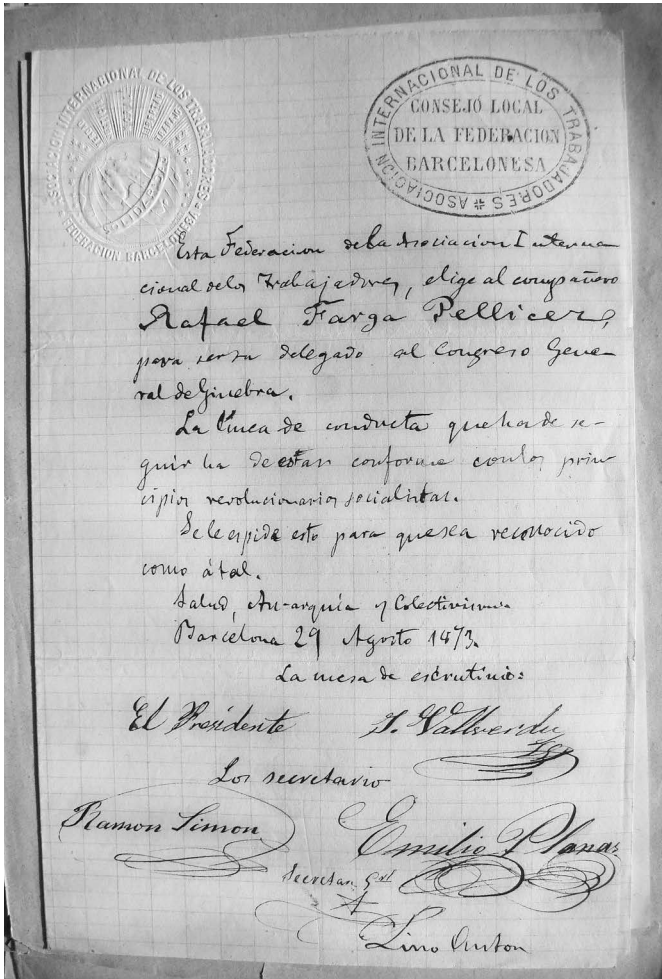 ASOCIACION INTERNACIONAL DE LOS TRABAJADORES
FEDERACION BARCELONESA
ASOCIACION INTERNACIONAL DE LOS TRABAJADORES
CONSEJO LOCAL
DE LA FEDERACION
BARCELONESA
Esta Federacion de la Asociacion Interna
cional de los Trabajadores, elige al compañero
Rafael Farga Pellicer,
para ser su delegado al Congreso Gene-
ral de Ginebra.
La línea de conducta que ha de se-
guir ha de estar conforme con los prin
cipios revolucionarios socialistas.
Se le espide esto para que sea reconocido
como á tal.
Salud, An-arquía y Colectivismo.
Barcelona 29 Agosto 1873.
La mesa de escrutinio:
El Presidente J. Vallverdu
Los secretario
Ramon Simon Emilio Planas
Secretan Gral
Lino Anton